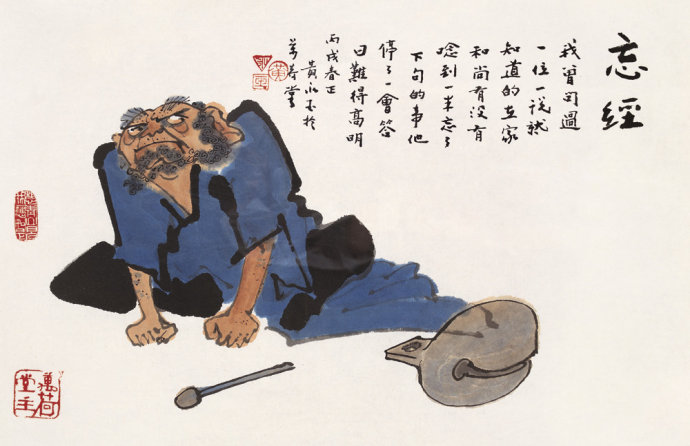 忘經
我曾问過
一位一说就
知道的在家
和尚有没有
唸到一半忘了
下句的事他
停了一會答
曰難得高明
丙戌春正
黄永玉於
萬荷堂
萬荷
堂主